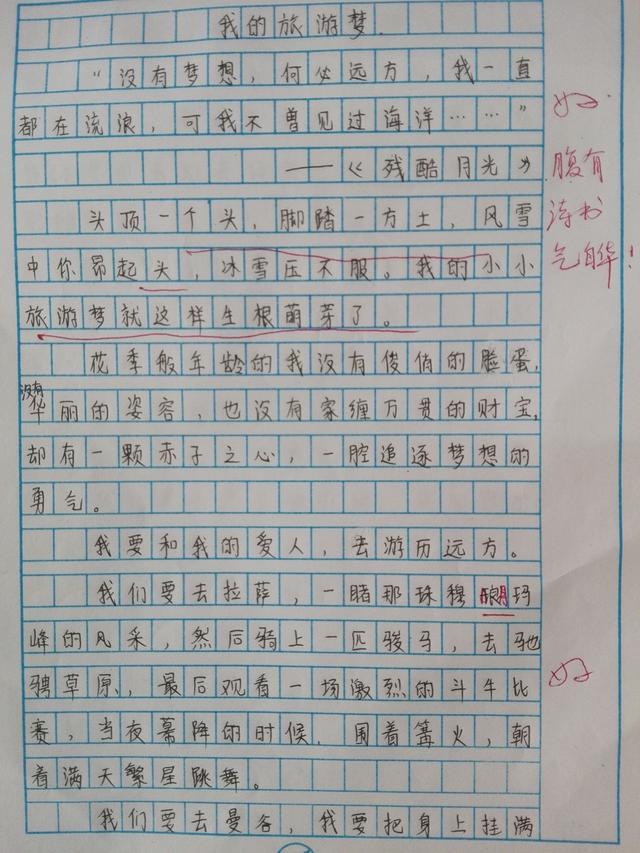 我的旅游梦.
“没有梦想，何必远方，我一直
都在流浪，可我不曾见过海洋……”
——《残酷月光》
头顶一个头，脚踏一方土，风雪
中你昂起头，冰雪压不服。我的小小
旅游梦就这样生根萌芽了。
花季般年龄的我没有俊俏的脸蛋，
没有华丽的姿容，也没有家缠万贯的财宝，
却有一颗赤子之心，一腔追逐梦想的
勇气。
我要和我的爱人，去游历远方。
我们要去拉萨，一睹那珠穆朗玛
峰的风采，然后骑上一匹骏马，去驰
骋草原，最后观看一场激烈的斗牛比
赛，当夜幕降的时候，围着篝火，朝
着满天繁星跳舞。
我们要去曼谷，我要把身上挂满
好
腹有
诗书
气自华！
好